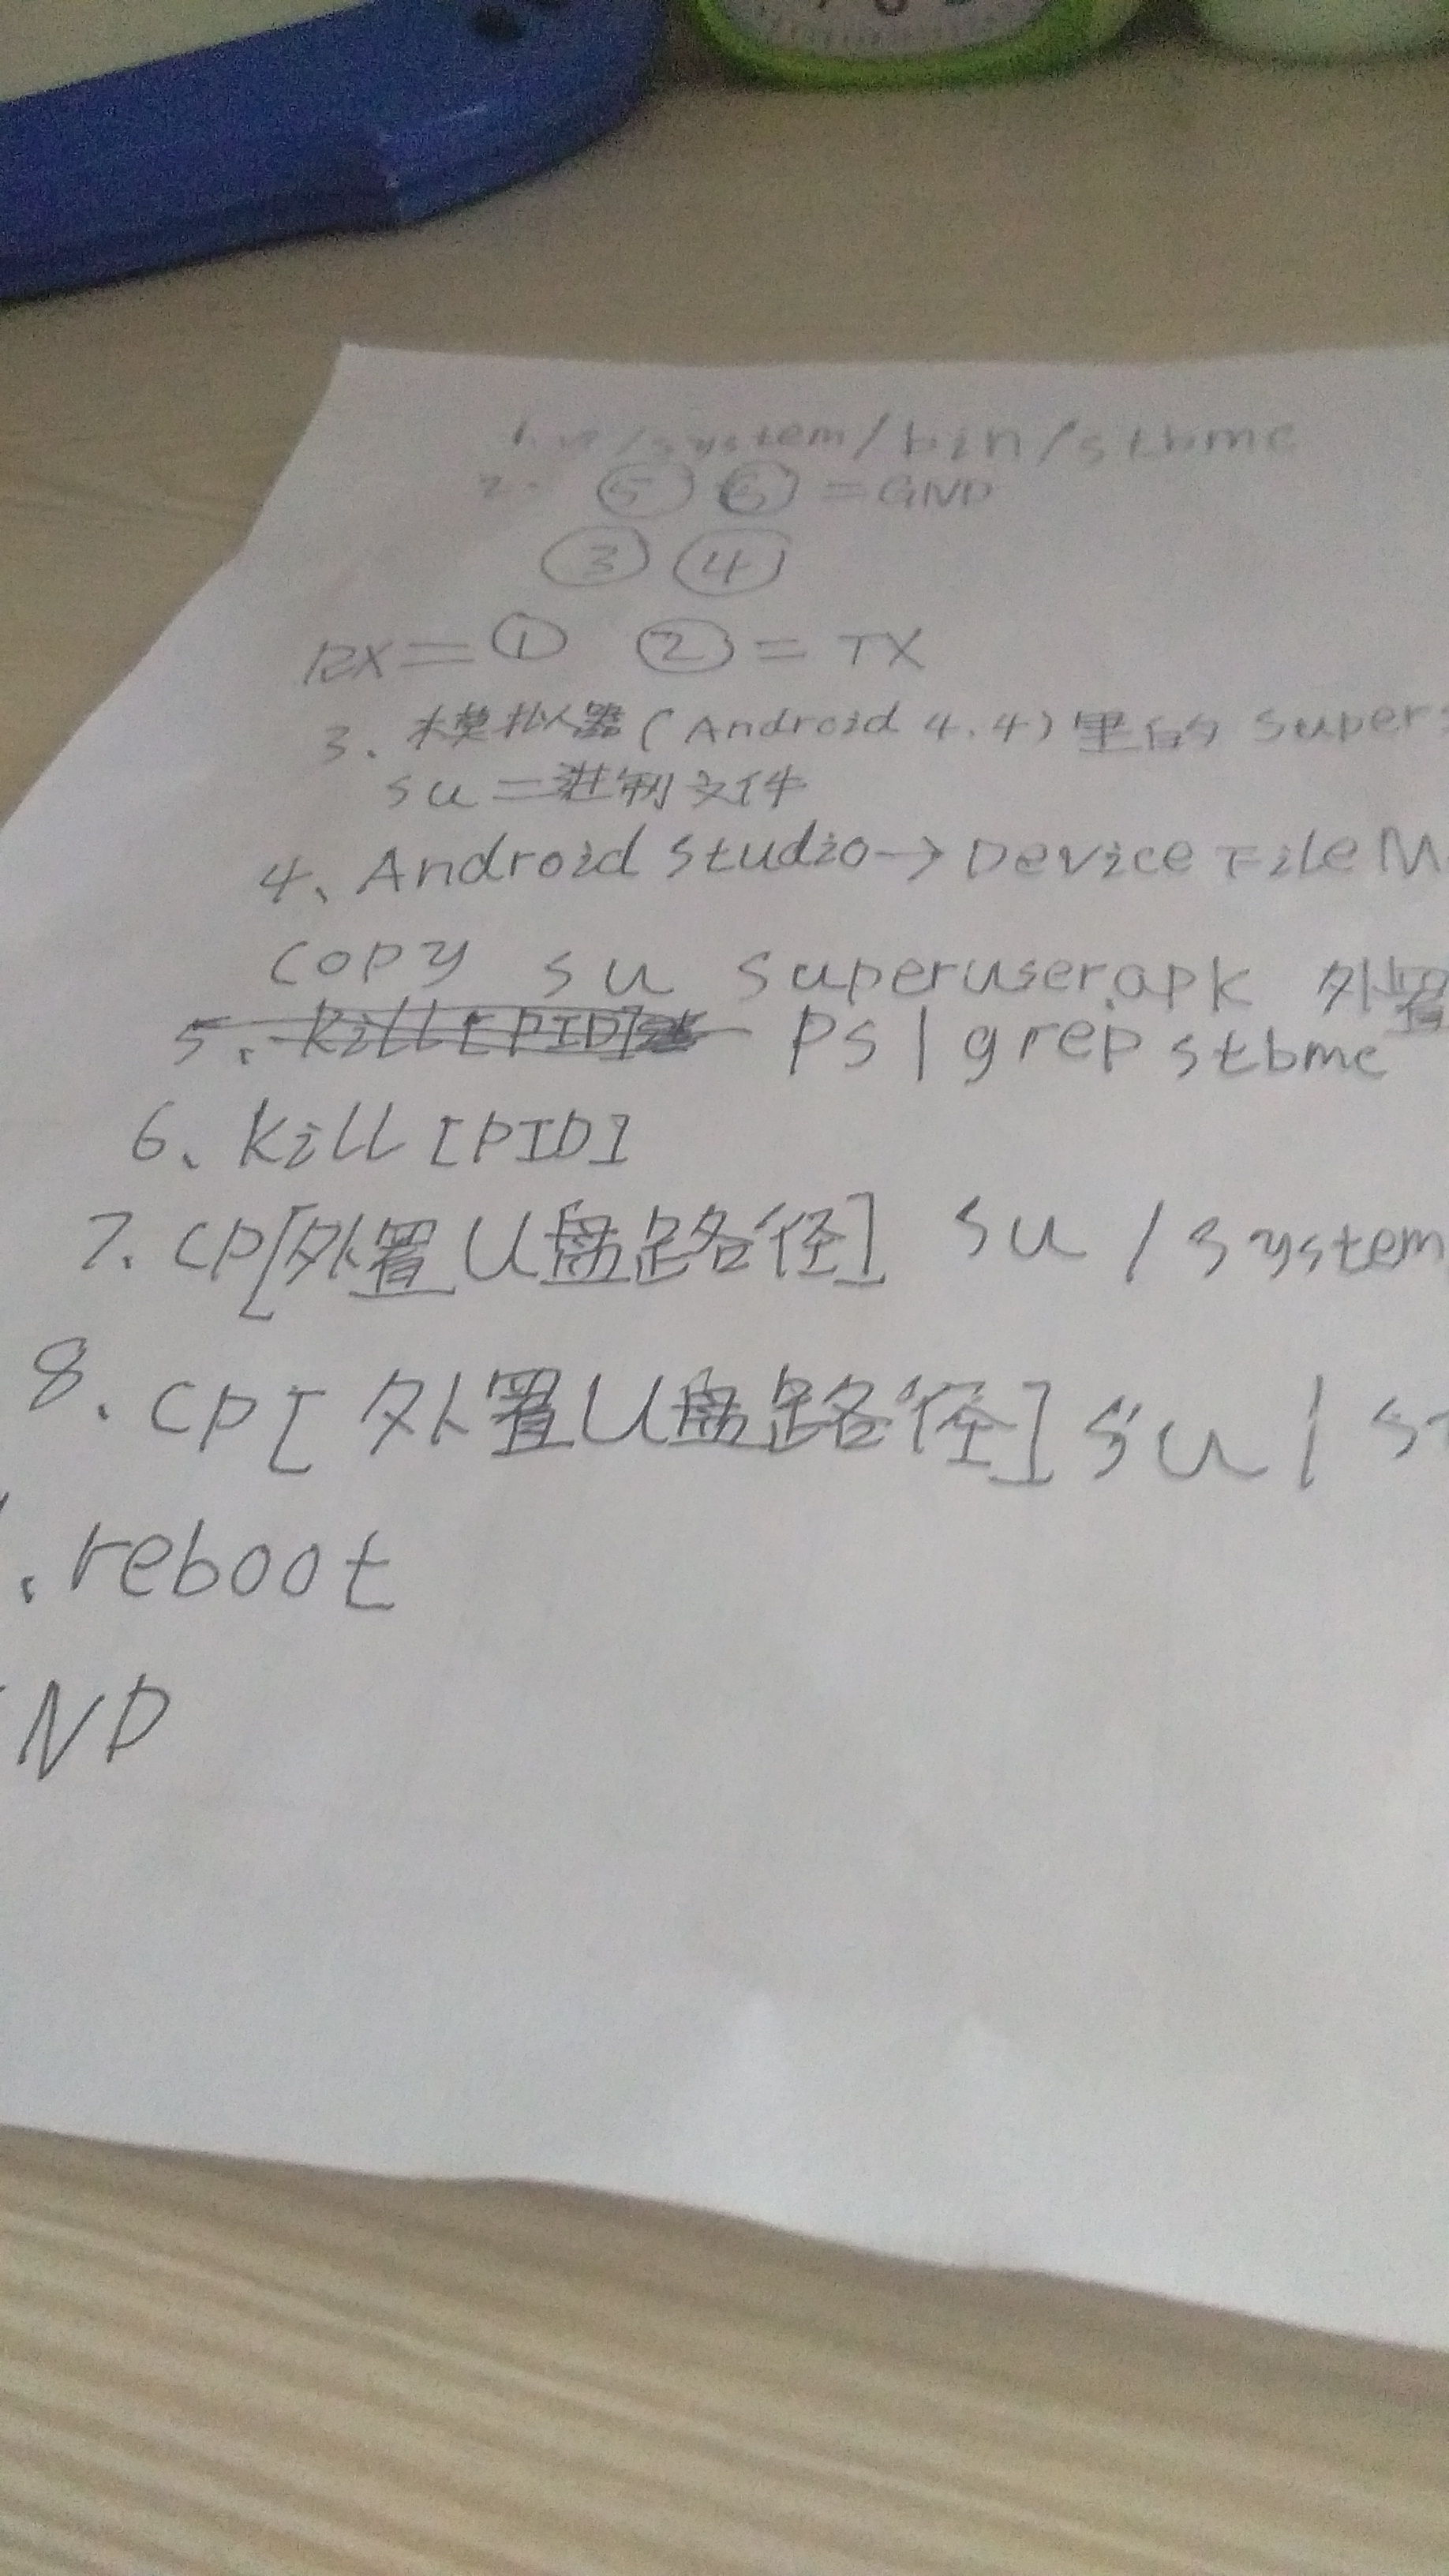 /system/bin/stbmc
2. ⑤ ⑥ = GND
③ ④
RX = ① ② = TX
3. 模拟器(Android 4.4)里的 Super
su二进制文件
4、Android Studio→Device File M
copy su superuser.apk 外置
5、kill [PID] ps | grep stbmc
6、kill [PID]
7. cp[外置U盘路径] su /system
8. cp[外置U盘路径] su / s
.reboot
ND